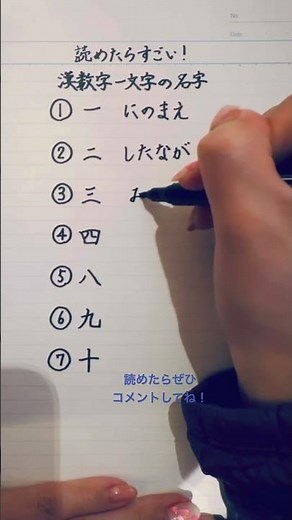 読めたらすごい！
漢数字一文字の名字
① 一 にのまえ
② 二 したなが
③ 三
④ 四
⑤ 八
⑥ 九
⑦ 十
読めたらぜひ
コメントしてね！